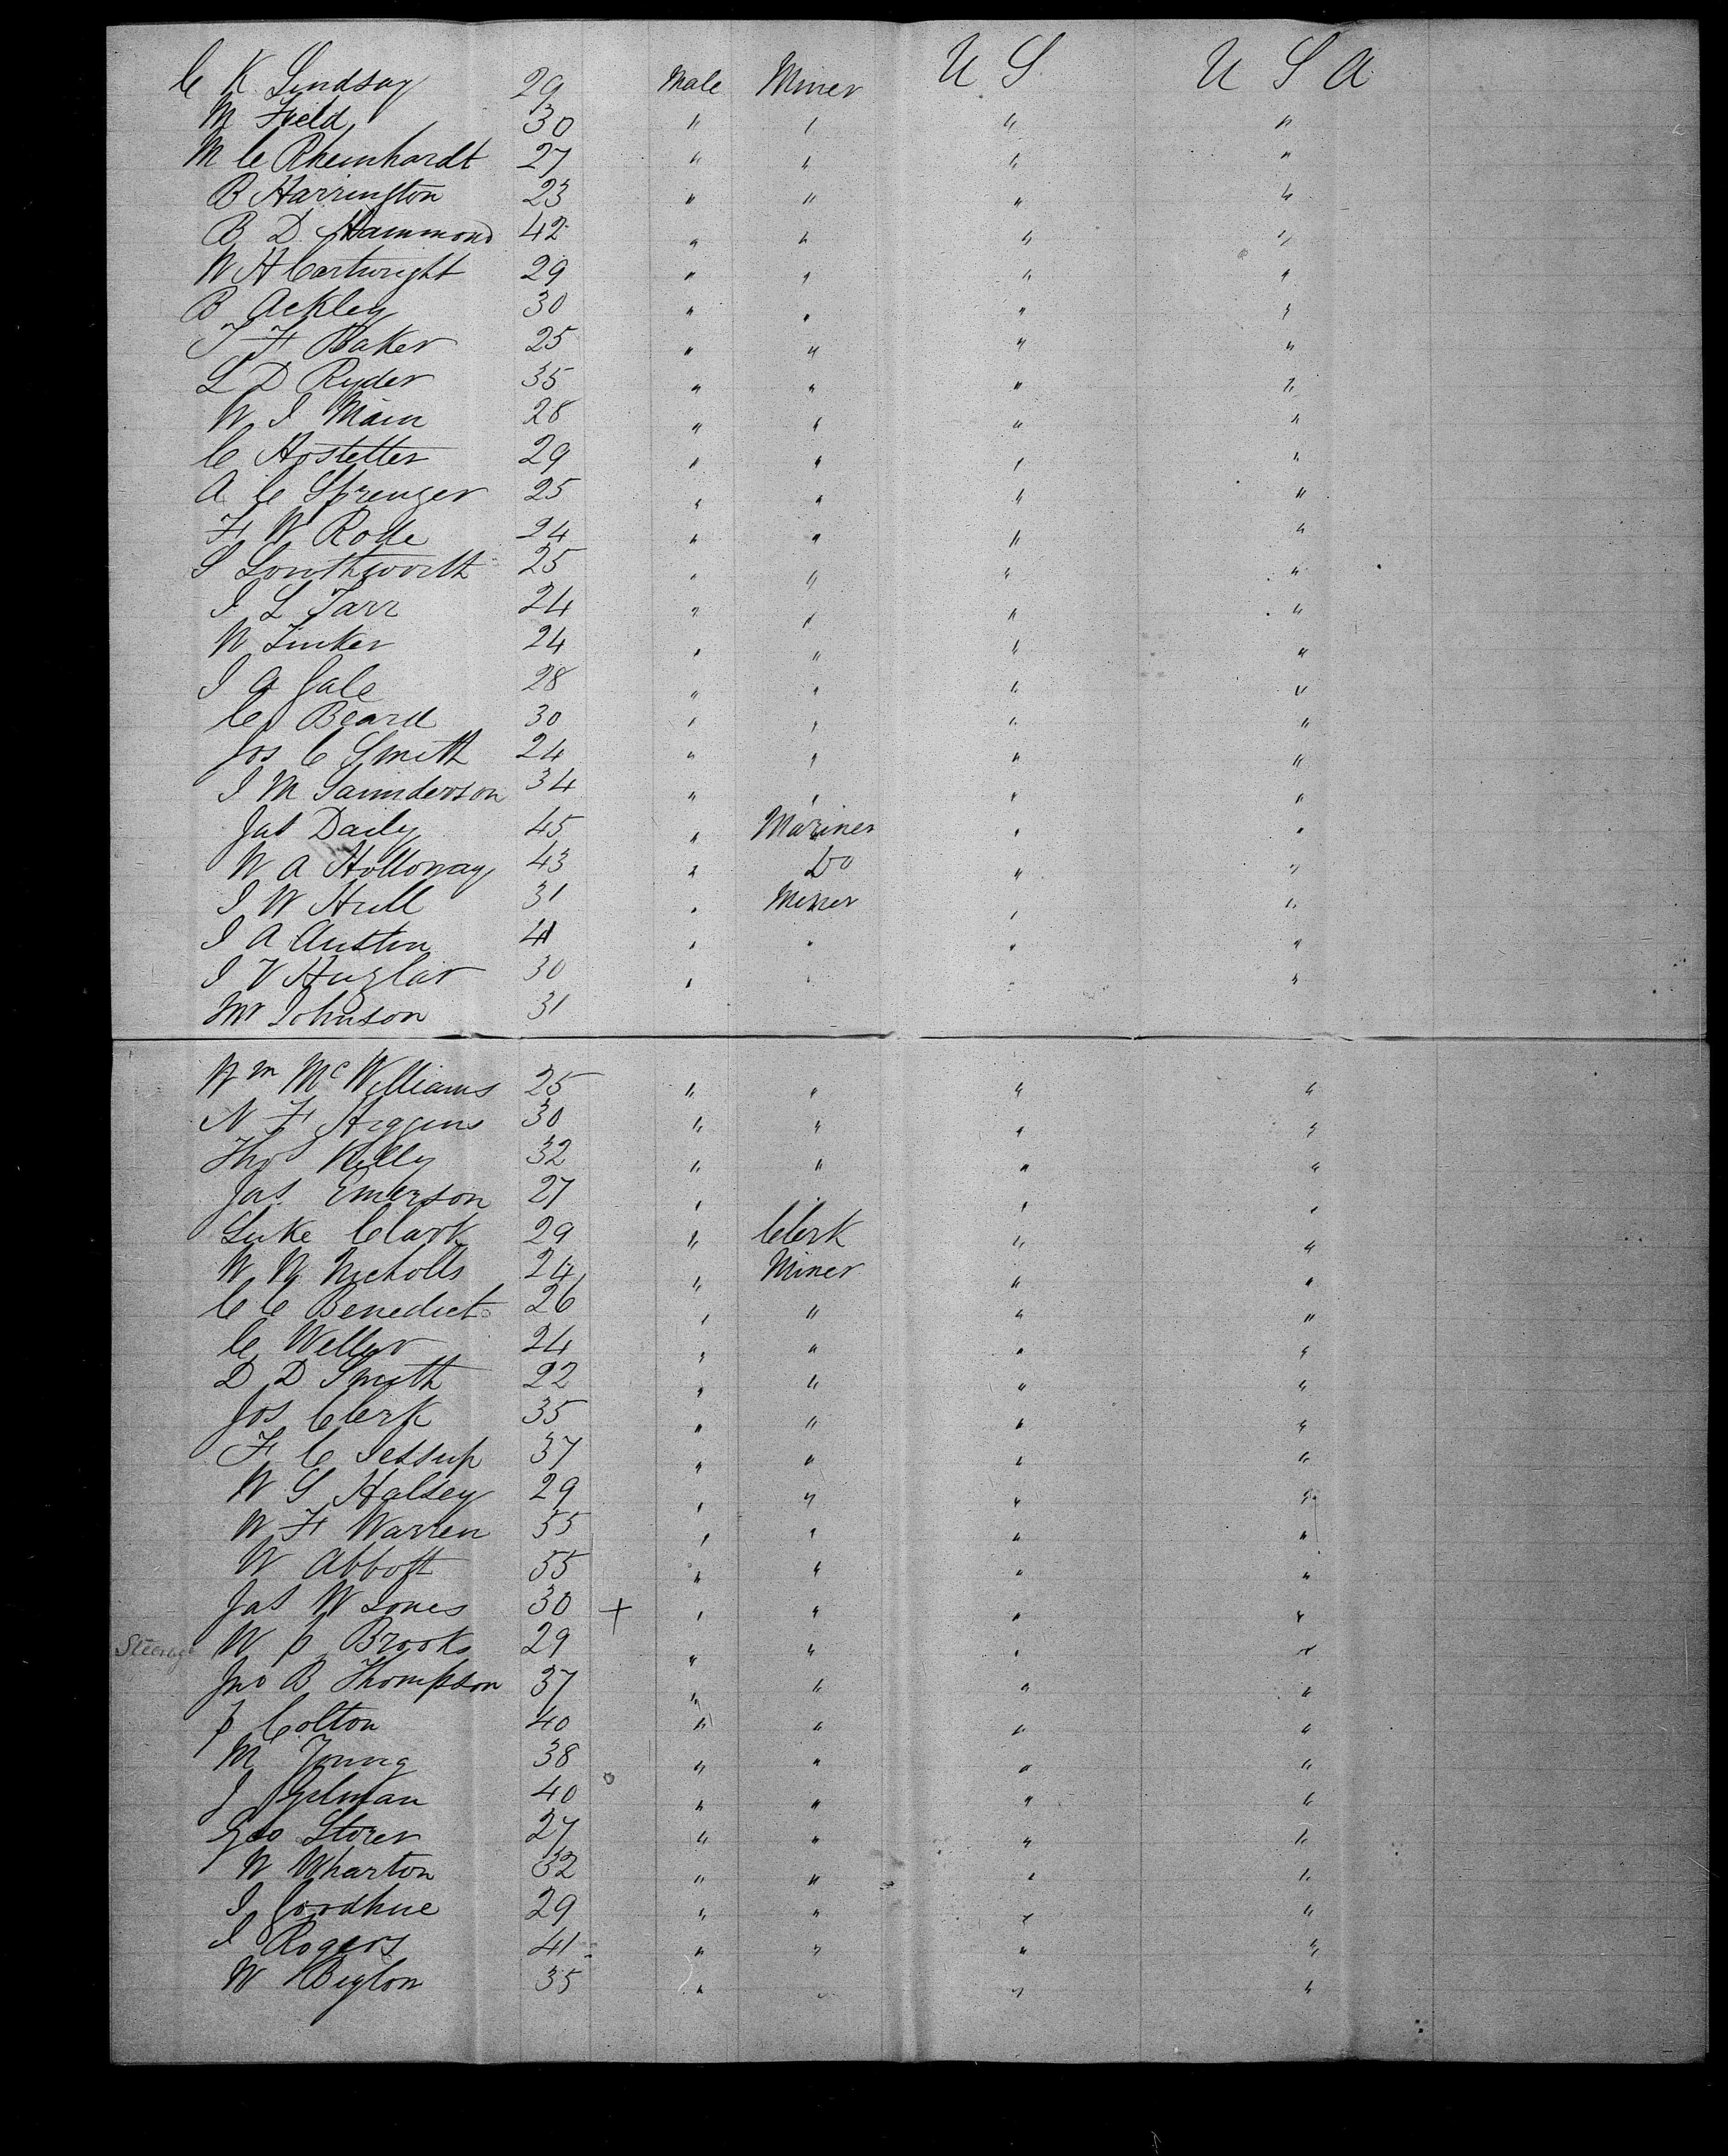 C K Lindsay 29 Male Miner U S. U S A
M Field 30 " " " "
M C Rheinhardt 27 " " " "
B Harrington 23 " " " "
B D Hammond 42 " " " "
W H Cartwright 29 " " " "
B Ackley 30 " " " "
T F Baker 25 " " " "
L D Ryder 35 " " " "
W I Main 28 " " " "
C Hostetter 29 " " " "
A C Sprenger 25 " " " "
F W Rolle 24 " " " "
S Southworth 25 " " " "
I L Tarr 24 " " " "
W Tinker 24 " " " "
I A Gale 28 " " " "
C Beard 30 " " " "
Jos C Smith 24 " " " "
I M Saunderson 34 " " " "
Jas Daily 45 " Mariner " "
W A Holloway 43 " Do " "
I W Hull 31 " Miner " "
I A Austin 41 " " " "
I V Huglar 30 " " " "
Mr Johnson 31
Wm McWilliams 25 " " " "
N F Higgins 30 " " " "
Thos Kelly 32 " " " "
Jas Emerson 27 " " "
Luke Clark 29 " Clerk " "
W N Nicholls 24 " Miner " "
C C Benedict 26 " " " "
C Weller 24 " " " "
D D Smith 22 " " " "
Jos Clerk 35 " " " "
F C Jessup 37 " " " "
W S Halsey 29 " " " "
W F Warren 55 " " " "
W Abbott 55 " " " "
Jas W Jones 30 + " " " "
Steerage W P Brooks 29 " " " "
Jno B Thompson 37 " " " "
P Colton 40 " " " "
M Young 38 " " " "
J Gilman 40 " " " "
Geo Storer 27 " " " "
W Wharton 32 " " " "
I Goodhue 29 " " " "
I Rogers 41 " " " "
W Biglon 35 " " " "